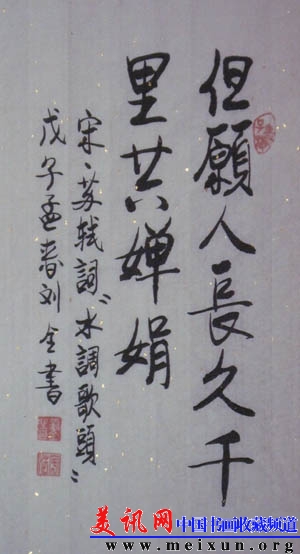 但願人長久千
里共嬋娟
宋、苏轼詞“水調歌頭”
戊子孟春刘全書
美讯网 中国书画收藏频道
www.meixun.org